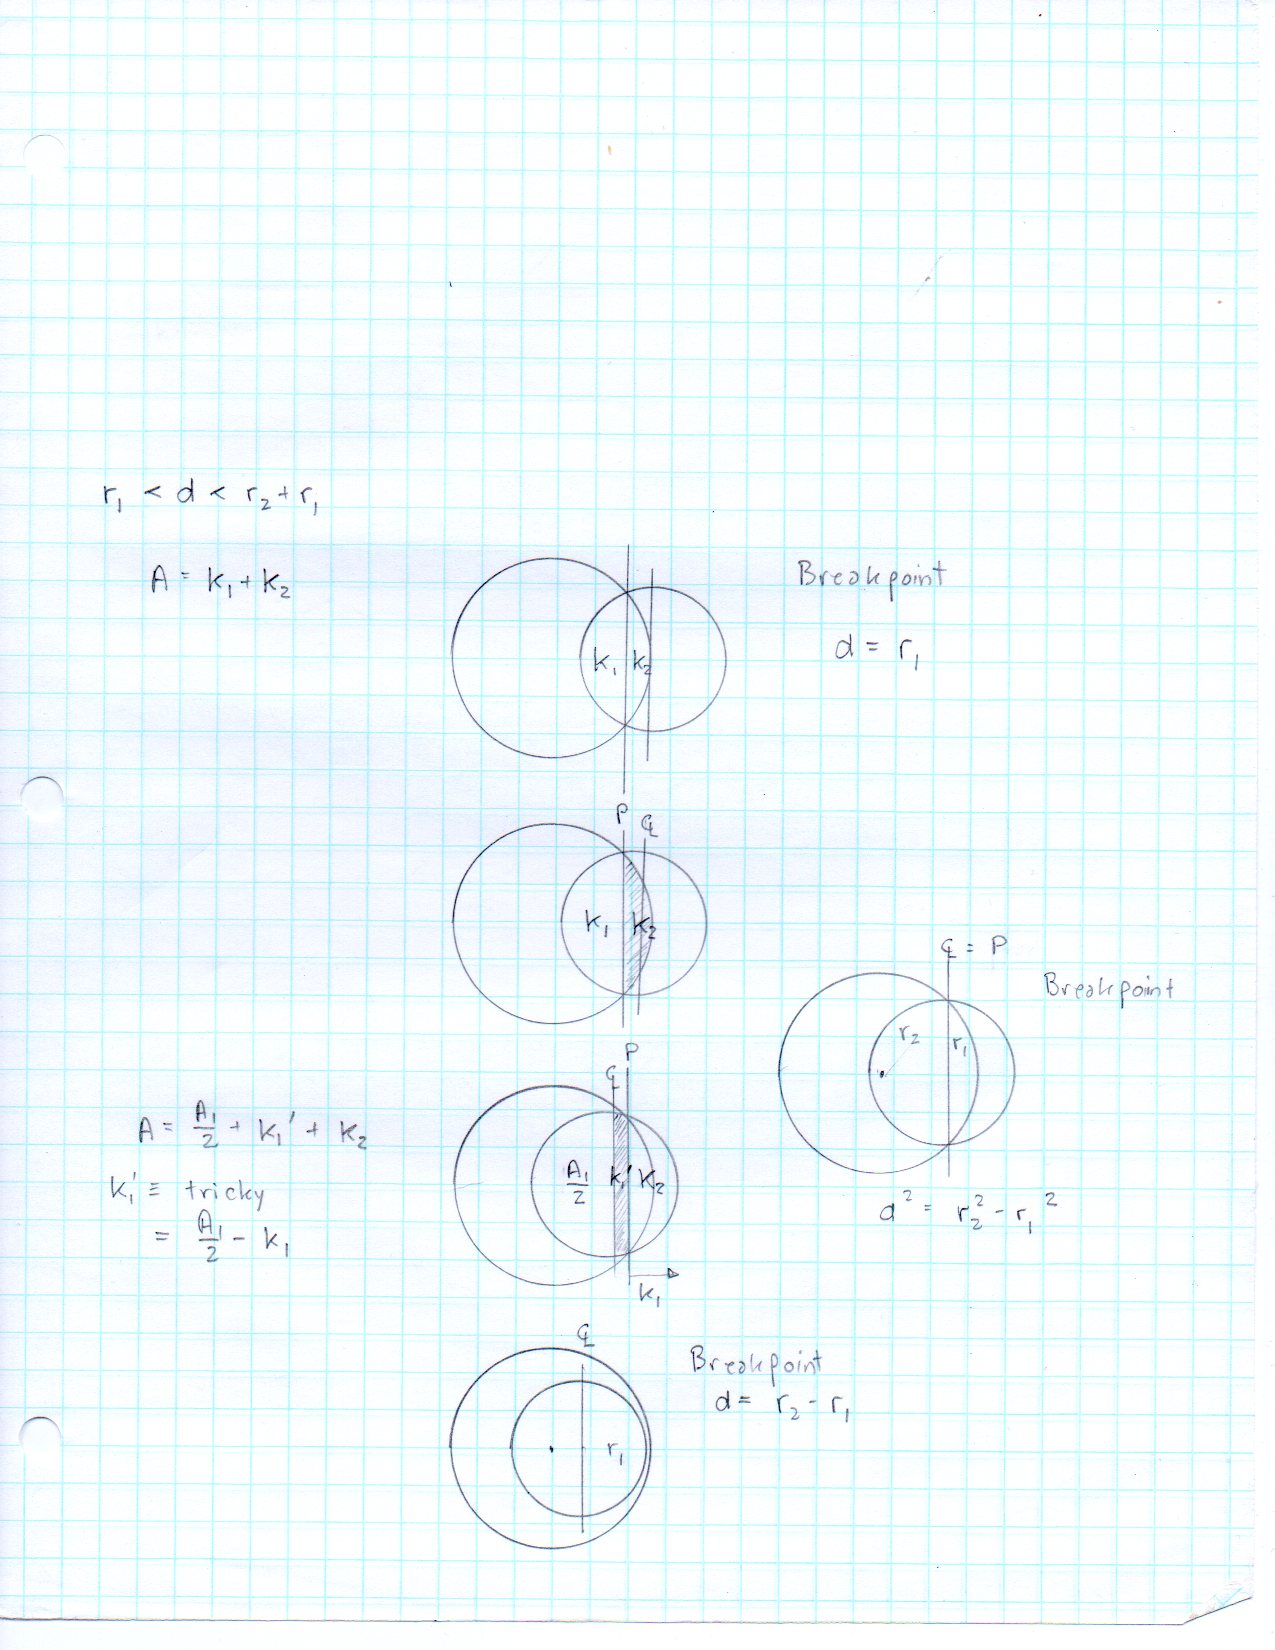 r₁ < d < r₂ + r₁
A = k₁ + k₂
k₁ k₂
Breakpoint
d = r₁
P ℄
k₁ k₂
℄ = P
Breakpoint
r₂ r₁
d² = r₂² - r₁²
℄ P
A = A₁/2 + k₁' + k₂
k₁' ≡ tricky
= A₁/2 - k₁
A₁/2 k₁' k₂
k₁
℄
r₁
Breakpoint
d = r₂ - r₁